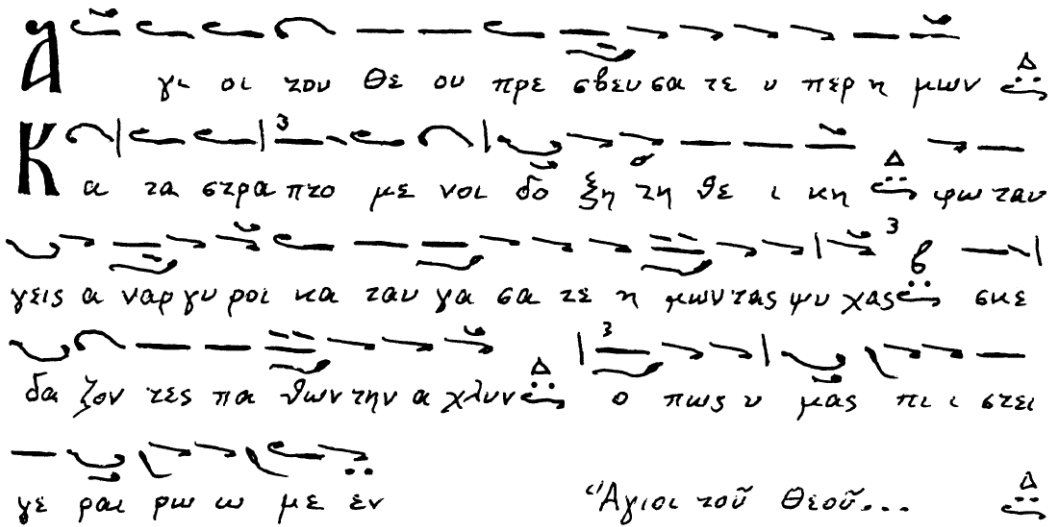 Α γι οι του Θε ου πρε σβευ σα τε υ περ η μων Δ
Κ α τα στρα πτο με νοι δο ξη τη θε ι κη Δ φω ταυ
γεις α ναρ γυ ροι κα ταυ γα σα τε η μων τας ψυ χας σκε
δα ζον τες πα θων την α χλυν Δ ο πως υ μας πι ι στει
γε ραι ρω ω με εν Ἅγιοι τοῦ Θεοῦ... Δ